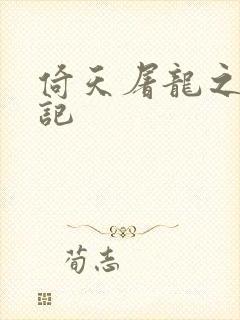 倚天屠龍之
記
荀志